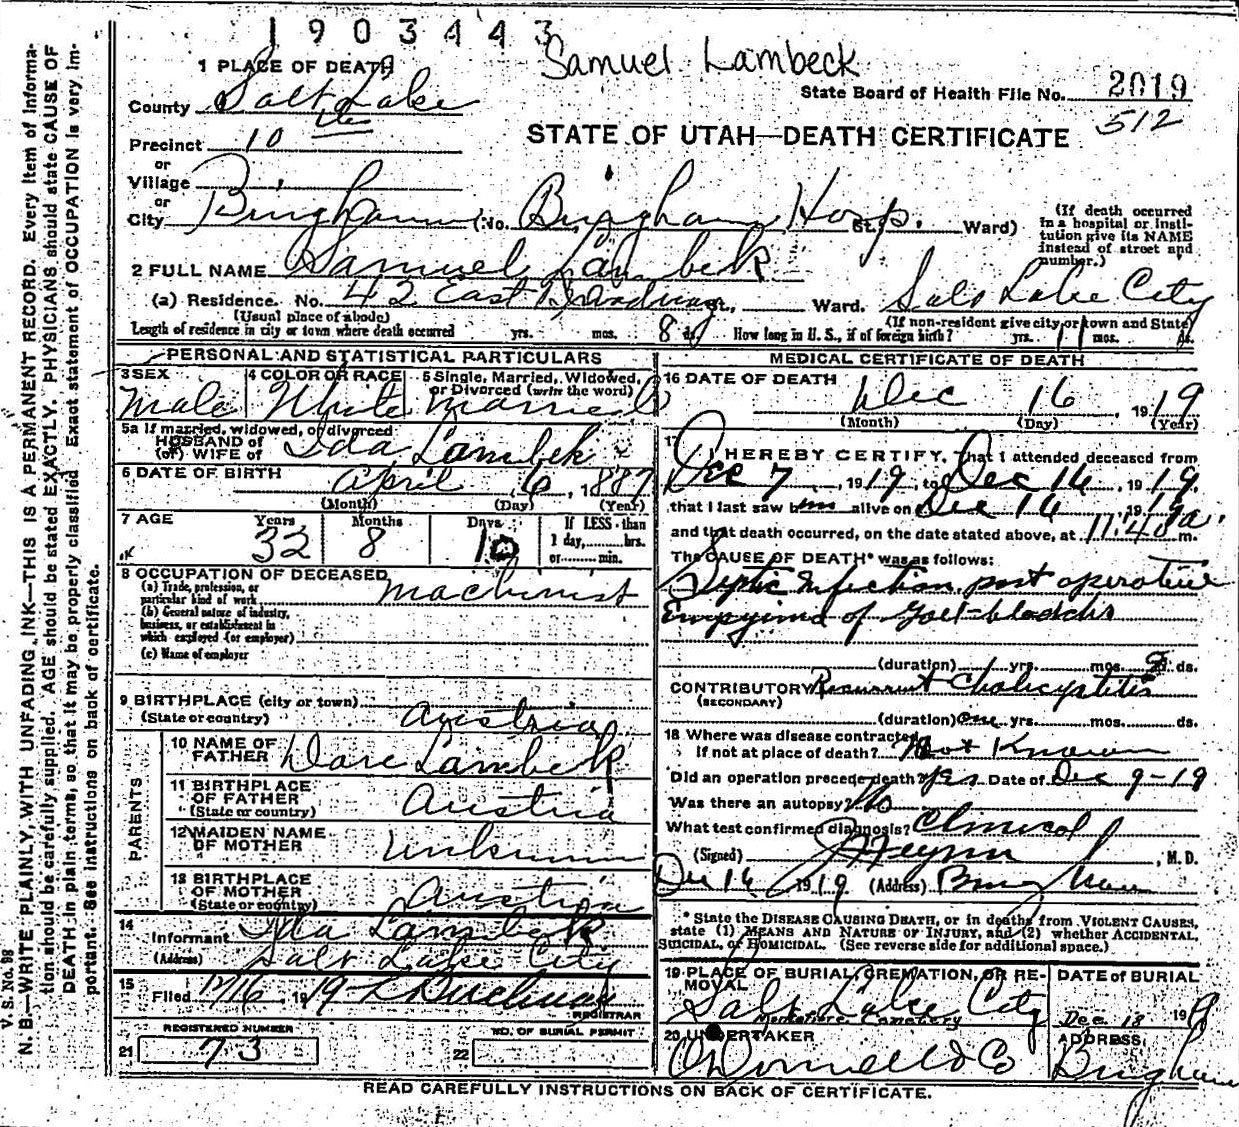 1903443
Samuel Lambeck
1 PLACE OF DEATH
State Board of Health File No. 2019
County Salt Lake
512
STATE OF UTAH—DEATH CERTIFICATE
Precinct 10
or
Village
or
City Bingham (No. Bingham Hosp. St., Ward)
(If death occurred in a hospital or institution give its NAME instead of street and number.)
2 FULL NAME Samuel Lambek
(a) Residence. No. 42 East St., Ward. Salt Lake City
(Usual place of abode) (If non-resident give city or town and State)
Length of residence in city or town where death occurred yrs. mos. 8 ds. How long in U. S., if of foreign birth? yrs. 11 mos. ds.
PERSONAL AND STATISTICAL PARTICULARS
3 SEX
Male
4 COLOR OR RACE
White
5 Single, Married, Widowed, or Divorced (write the word)
Married
5a If married, widowed, or divorced
HUSBAND of
(or) WIFE of Ida Lambek
6 DATE OF BIRTH April 6, 1887
(Month) (Day) (Year)
7 AGE Years Months Days If LESS than
32 8 10 1 day, hrs.
or min.
8 OCCUPATION OF DECEASED
(a) Trade, profession, or
particular kind of work Machinist
(b) General nature of industry,
business, or establishment in
which employed (or employer)
(c) Name of employer
9 BIRTHPLACE (city or town)
(State or country) Austria
PARENTS
10 NAME OF
FATHER Lambek
11 BIRTHPLACE
OF FATHER
(State or country) Austria
12 MAIDEN NAME
OF MOTHER Unknown
13 BIRTHPLACE
OF MOTHER
(State or country) Austria
14
Informant Ida Lambek
(Address) Salt Lake City
15
Filed 12/16, 1919
REGISTRAR
REGISTERED NUMBER
21 73
NO. OF BURIAL PERMIT
22
MEDICAL CERTIFICATE OF DEATH
16 DATE OF DEATH
Dec 16, 1919
(Month) (Day) (Year)
17 I HEREBY CERTIFY, that I attended deceased from
Dec 7, 1919, to Dec 16, 1919,
that I last saw him alive on Dec 16, 1919,
and that death occurred, on the date stated above, at 11:40 a. m.
The CAUSE OF DEATH* was as follows:
Septic Infection post operative
Empyema of gall-bladder
(duration) yrs. mos. ds.
CONTRIBUTORY Recurrent Cholicystitis
(SECONDARY)
(duration) one yrs. mos. ds.
18 Where was disease contracted
If not at place of death? Not Known
Did an operation precede death? yes Date of Dec 9-19
Was there an autopsy? No
What test confirmed diagnosis? Clinical
(Signed) , M. D.
Dec 16, 1919 (Address) Bingham
* State the DISEASE CAUSING DEATH, or in deaths from VIOLENT CAUSES,
state (1) MEANS AND NATURE OF INJURY, and (2) whether ACCIDENTAL,
SUICIDAL, or HOMICIDAL. (See reverse side for additional space.)
19 PLACE OF BURIAL, CREMATION, OR REMOVAL
Salt Lake City
Cemetery
DATE of BURIAL
Dec. 18 1919
20 UNDERTAKER
O'Donnell & Co
ADDRESS
Bingham
READ CAREFULLY INSTRUCTIONS ON BACK OF CERTIFICATE.
V. S. No. 88
N. B.—WRITE PLAINLY, WITH UNFADING INK—THIS IS A PERMANENT RECORD. Every item of information should be carefully supplied. AGE should be stated EXACTLY. PHYSICIANS should state CAUSE OF DEATH in plain terms, so that it may be properly classified. Exact statement of OCCUPATION is very important. See instructions on back of certificate.